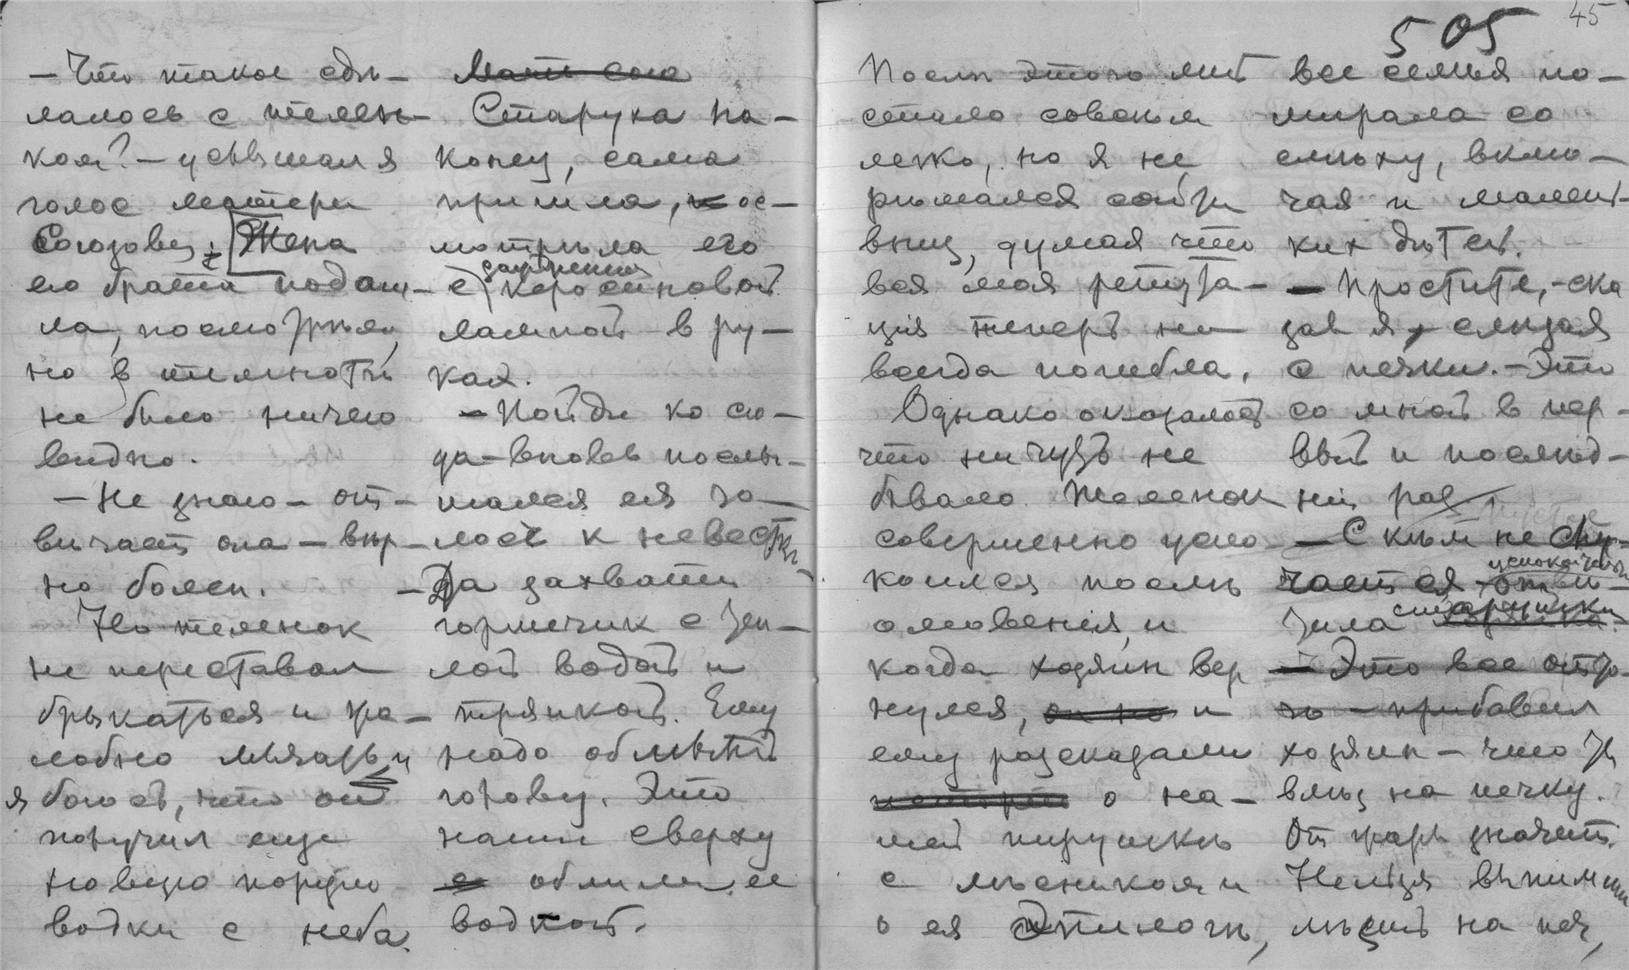 45
505
— Что такое сдѣ-
лалось с телен-
ком? — услышал я
голос матери
Союзовец. Жена
его брата подош-
ла, посмотрѣла,
но в темнотѣ
не было ничего
видно.
— Не знаю — от-
вѣчает она — вѣр-
но болен.
Но теленок
не переставал
брыкаться и жа-
лобно мычать и
я боюсь, что он
получил еще
новую порцію
водки с неба.
Мать сою
Старуха на-
конец, сама
пришла, ос-
мотрѣла его
с керосиновой
лампой в ру-
ках.
— Пойди ко сю-
да — вновь послы-
шался ея го-
лос к невесткѣ
— Да захвати
горшечик с теп-
лой водой и
тряпкой. Ему
надо обмыть
голову. Это
наши сверху
облили ее
водкой.
Послѣ этого мнѣ
стало совсем
легко, но я не
рѣшался сойти
вниз, думая что
вся моя репута-
ція теперь на
всегда погибла.
Однако оказалось
что ничуть не
бывало. Теленок
совершенно успо-
коился послѣ
омовенія, и
когда хозяин вер
нулся, он но и
ему разсказали
о на-
шей пирушкѣ
с мѣсником и
о ея эпилогѣ,
вся семья по-
мирала со
смѣху, вклю-
чая и малень-
ких дѣтей.
— Простите, — ска
зал я, слѣзая
с печки. — Это
со мной в пер-
вый и послѣд-
ній раз
— С кѣм не слу-
чается успокои
тила старушка
— Это все от то-
го — прибавил
хозяин — что ты
влѣз на печку.
От жары значит.
Нельзя выпимши
лѣзть на печ,